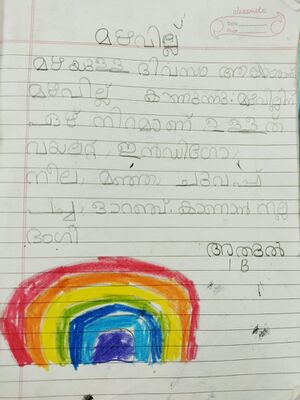 classmate
Date
Page
മഴവില്ല്
മഴയുള്ള ദിവസം ആകാശത്ത്
മഴവില്ല് കാണുന്നു. മഴവില്ലിന്
ഏഴ് നിറമാണ് ഉള്ളത്
വയലറ്റ്, ഇൻഡിഗോ,
നീല, മഞ്ഞ, ചുവപ്പ്
പച്ച, ഓറഞ്ച്. കാണാൻ നല്ല
ഭംഗി
അതുൽ
1 B